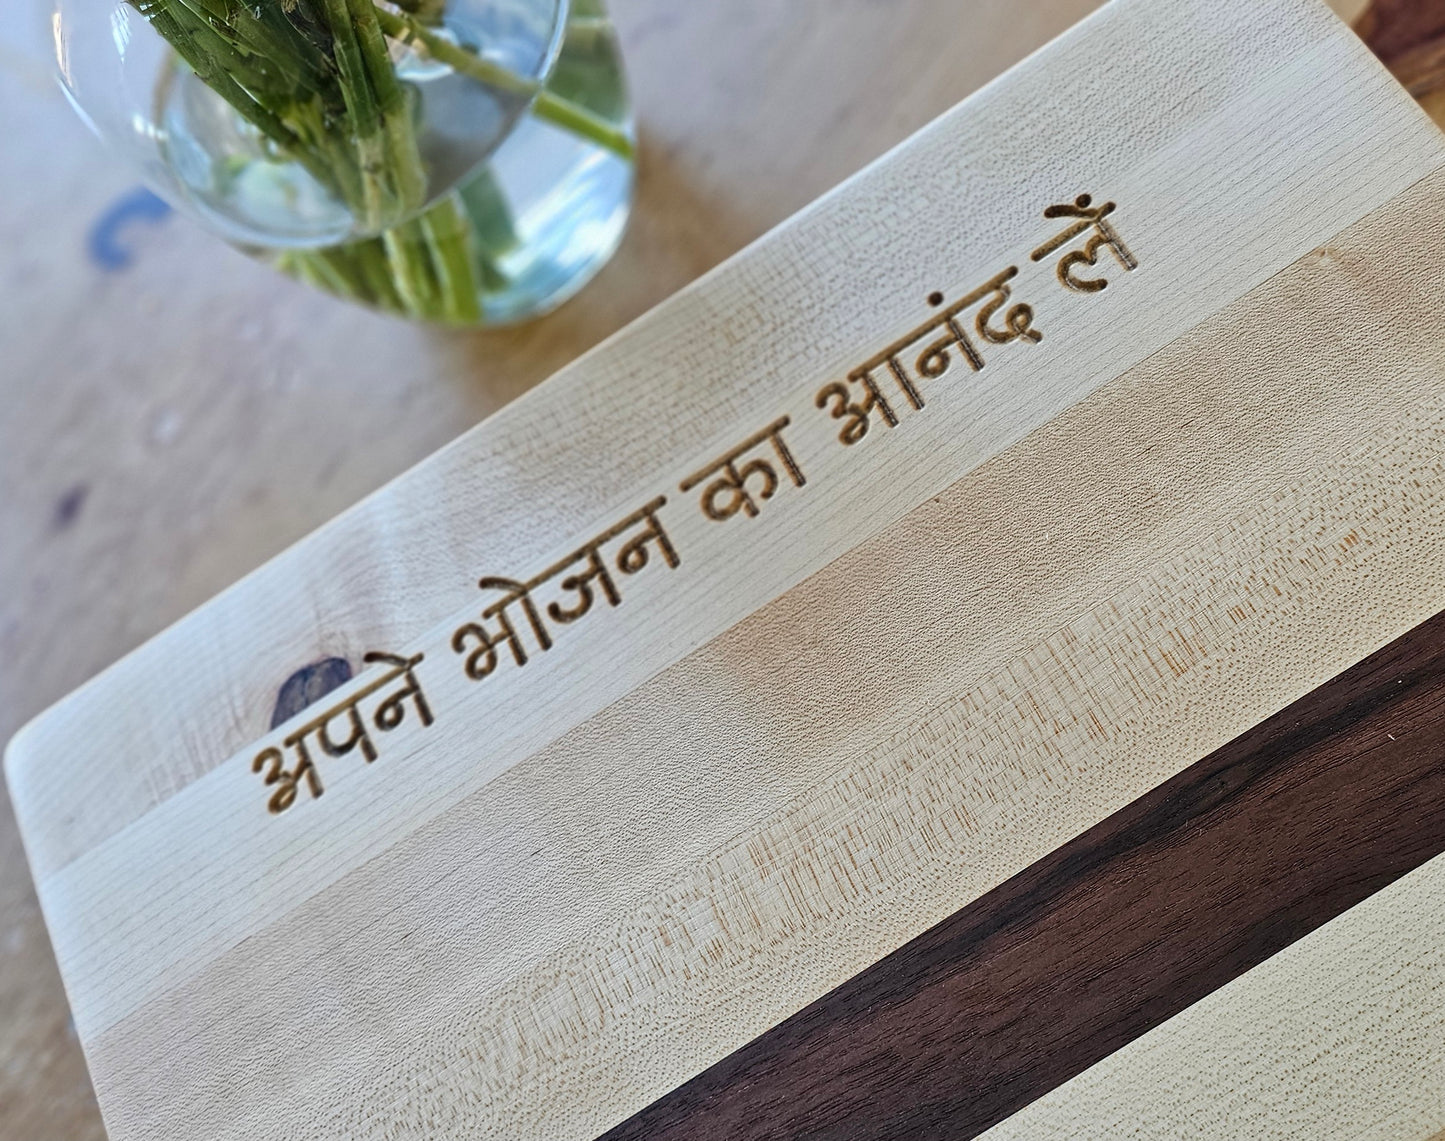 अपने भोजन का आनंद लें